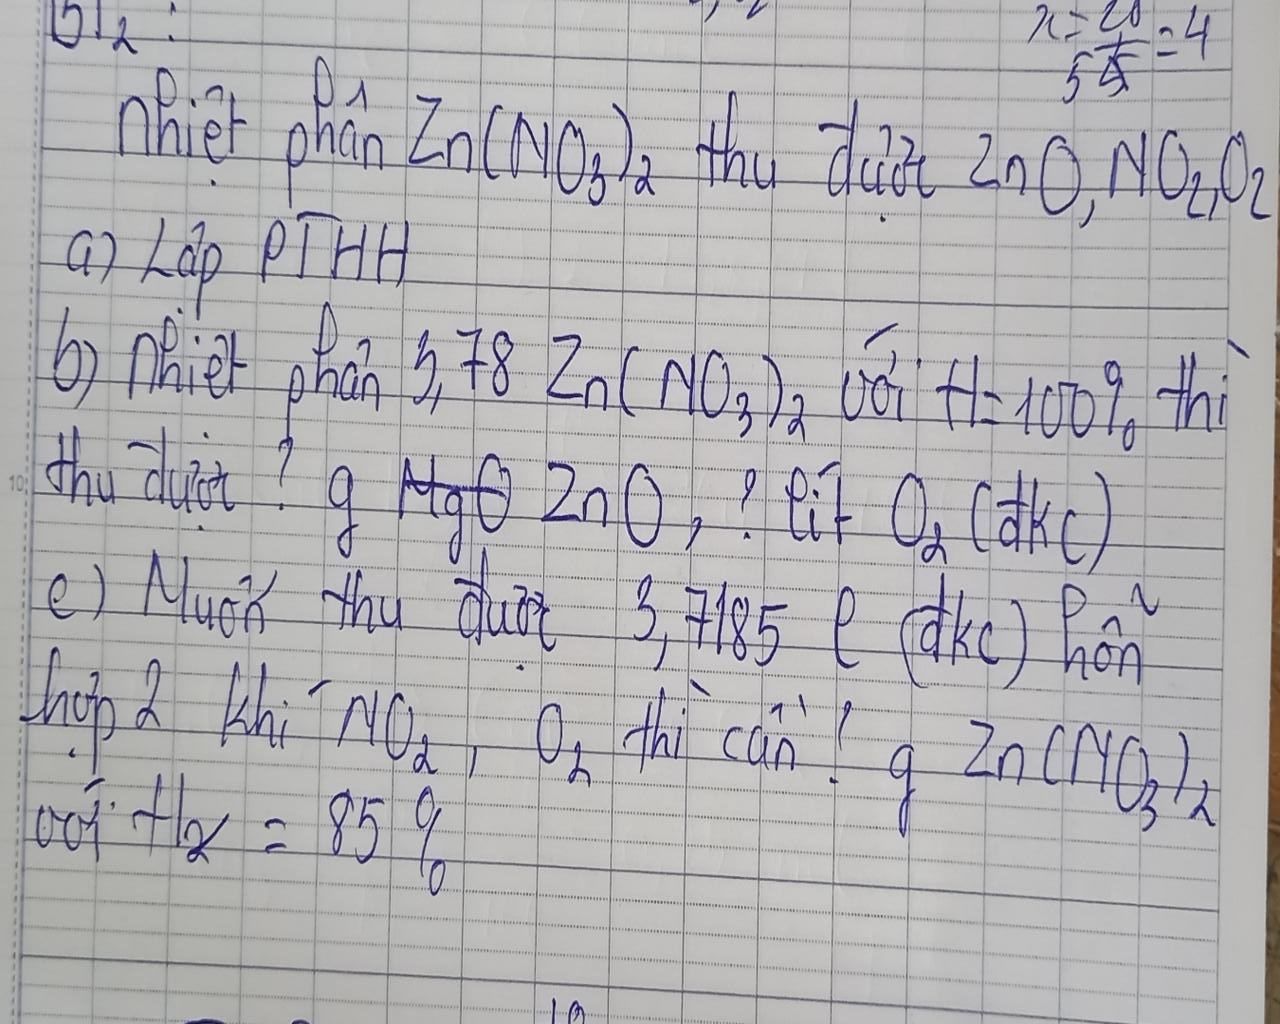 BT2:
x = 20
5 = 4
Nhiệt phân Zn(NO3)2 thu được ZnO, NO2, O2
a) Lập PTHH
b) Nhiệt phân 3,78 Zn(NO3)2 với H=100% thì
thu được ? g MgO ZnO, ? lít O2 (đkc)
c) Muốn thu được 3,7185 l (đkc) hỗn
hợp 2 khí NO2, O2 thì cần ? g Zn(NO3)2
với H2 = 85%
10